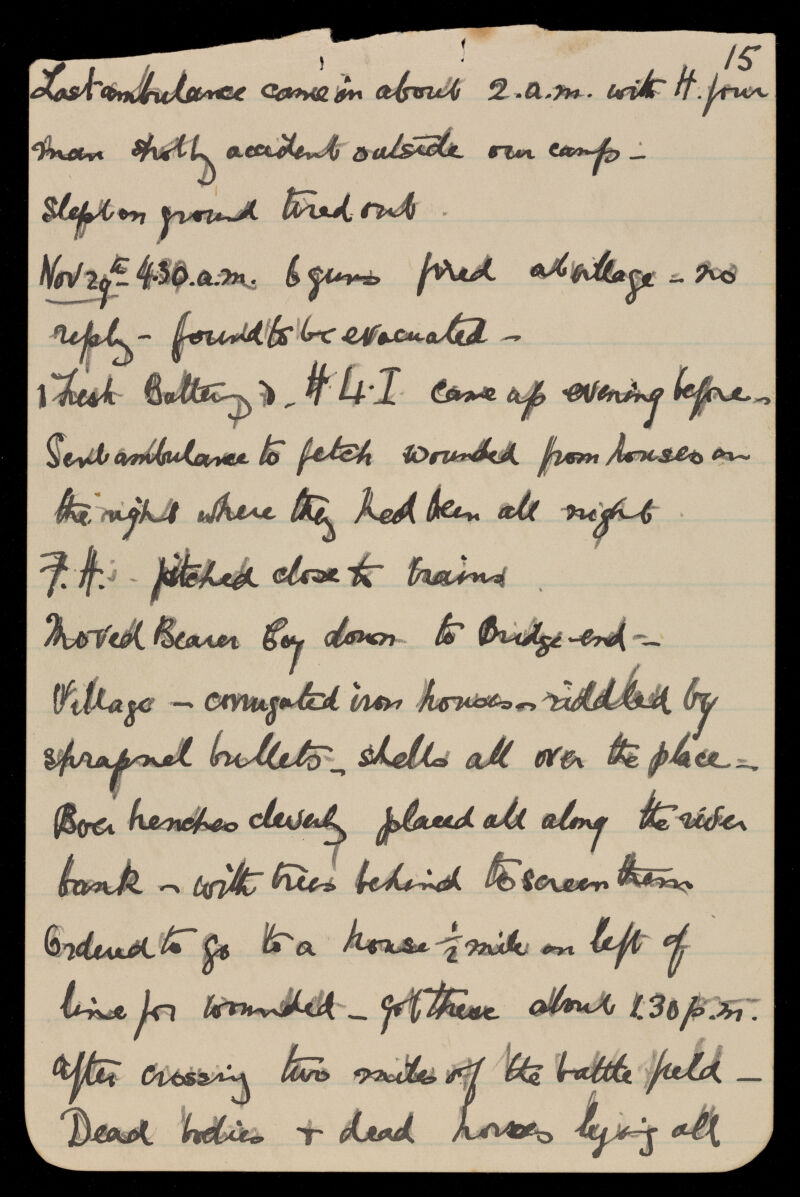 15
Last ambulance came in about 2.a.m. with H. four
man shot by accident outside our camp –
slept on ground tired out.
Nov 29th 4.30.a.m. 6 guns fired at village – no
reply – found to be evacuated –
Fresh Battery came up evening before –
Sent ambulance to fetch wounded from houses on
the right where they had been all night
F.H. pitched close to trains
Moved Bearer Coy down to Bridge-end –
Village – corrugated iron houses – riddled by
shrapnel bullets – shells all over the place –
Boer trenches cleverly placed all along the river
bank – with trees behind to screen them
Ordered to go to a house ½ mile on left of
line for wounded – got there about 1.30 p.m.
after crossing two miles of the battle field –
Dead bodies + dead horses lying all